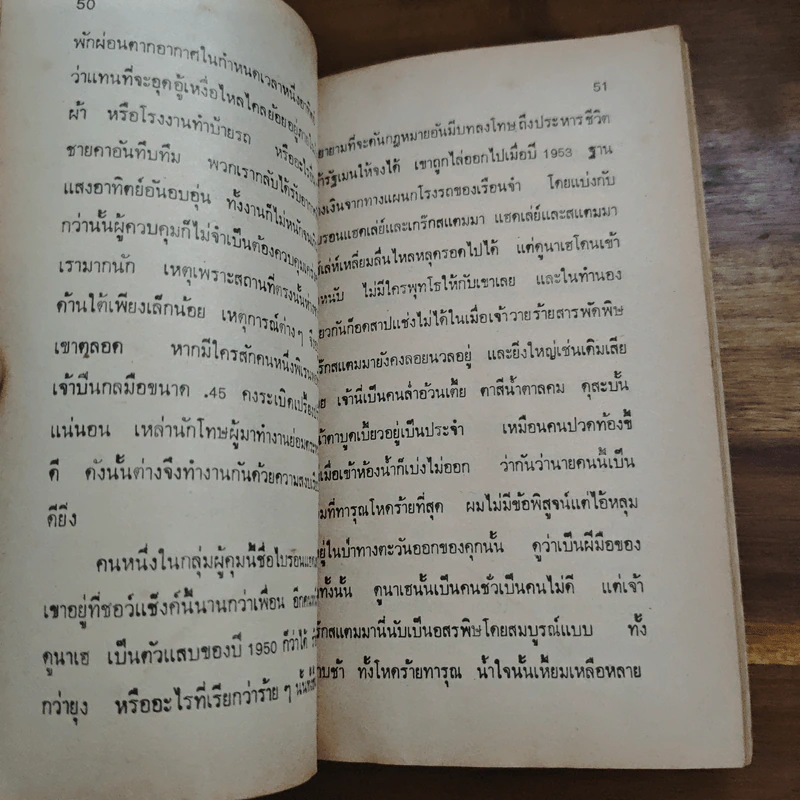 50
พักผ่อนตากอากาศในกำหนดเวลาหนึ่งอาทิตย์
ว่าแทนที่จะอุดอู้เหงื่อไหลไคลย้อยอยู่
ผ้า หรือโรงงานทำป้ายรถ หรืออะไร
ชายคาอันทึบทึม พวกเรากลับได้รับ
แสงอาทิตย์อันอบอุ่น ทั้งงานก็ไม่หนัก
กว่านั้นผู้ควบคุมก็ไม่จำเป็นต้องควบคุม
เรามากนัก เหตุเพราะสถานที่ตรงนั้น
ด้านใต้เพียงเล็กน้อย เหตุการณ์ต่างๆ
เขาตลอด หากมีใครสักคนหนึ่งพิเรน
เจ้าปืนกลมือขนาด .45 คงระเบิดเปรี้ยง
แน่นอน เหล่านักโทษผู้มาทำงานย่อม
ดี ดังนั้นต่างจึงทำงานกันด้วยความสงบ
ดียิ่ง
คนหนึ่งในกลุ่มผู้คุมนี้ชื่อไบรอน
เขาอยู่ที่ชอว์แช็งค์นี้นานกว่าเพื่อน อีกคน
ดูนาเฮ เป็นตัวแสบของปี 1950 ก็ว่าได้
กว่ายุง หรืออะไรที่เรียกว่าร้ายๆ นั้น
51
ยายามที่จะดันกฎหมายอันมีบทลงโทษถึงประหารชีวิต
ห้รัฐเมนให้จงได้ เขาถูกไล่ออกไปเมื่อปี 1953 ฐาน
งเงินจากทางแผนกโรงรถของเรือนจำ โดยแบ่งกับ
บรอนแฮดเล่ย์และเกร๊กสแตมมา แฮดเล่ย์และสแตมมา
ล่ห์เหลี่ยมลื่นไหลหลุดรอดไปได้ แต่ดูนาเฮโดนเข้า
หนับ ไม่มีใครพุทโธให้กับเขาเลย และในทำนอง
ยวกันก็อดสาปแช่งไม่ได้ในเมื่อเจ้าวายร้ายสารพัดพิษ
ร๊กสแตมมายังคงลอยนวลอยู่ และยิ่งใหญ่เช่นเดิมเสีย
ย เจ้านี่เป็นคนล่ำอ้วนเตี้ย ตาสีน้ำตาลคม ดุสะบั้น
น้าตาบูดเบี้ยวอยู่เป็นประจำ เหมือนคนปวดท้องขี้
เมื่อเข้าห้องน้ำก็เบ่งไม่ออก ว่ากันว่านายคนนี้เป็น
มที่ทารุณโหดร้ายที่สุด ผมไม่มีข้อพิสูจน์แต่ไอ้หลุม
อยู่ในป่าทางตะวันออกของคุกนั้น ดูว่าเป็นฝีมือของ
ทั้งนั้น ดูนาเฮนั้นเป็นคนชั่วเป็นคนไม่ดี แต่เจ้า
ร๊กสแตมมานี่นับเป็นอสรพิษโดยสมบูรณ์แบบ ทั้ง
าบช้า ทั้งโหดร้ายทารุณ น้ำใจนั้นเหี้ยมเหลือหลาย